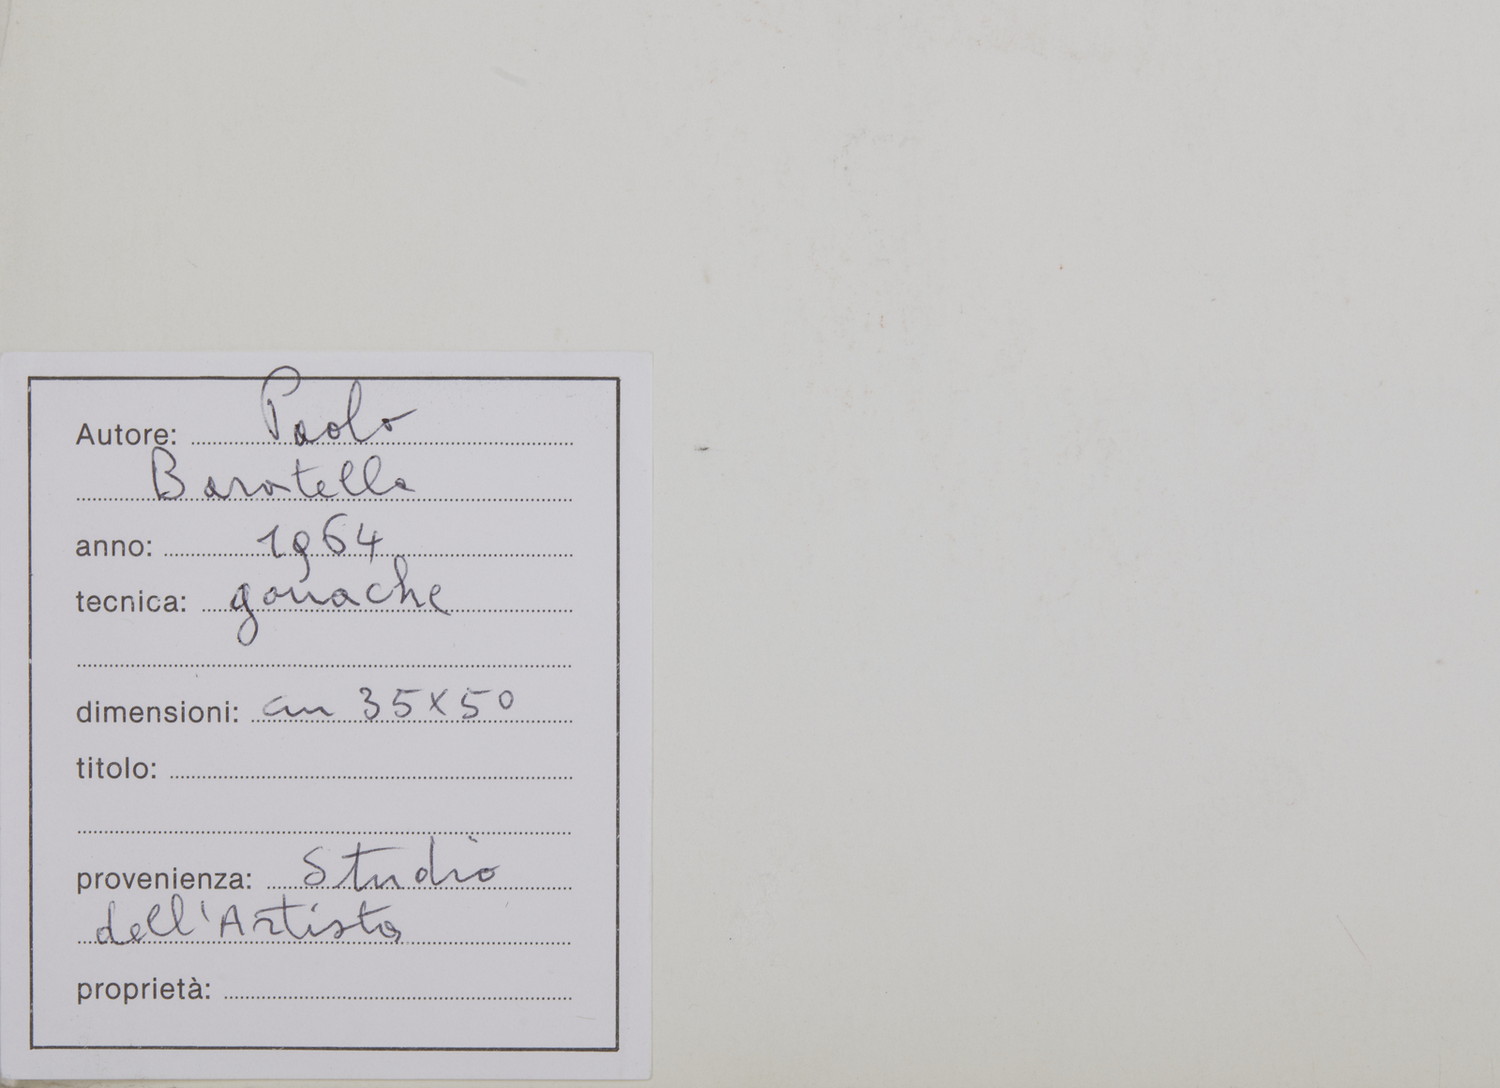 Autore: Paolo
Baratella
anno: 1964
tecnica: gouache
dimensioni: cm 35x50
titolo:
provenienza: Studio
dell'Artista
proprietà: